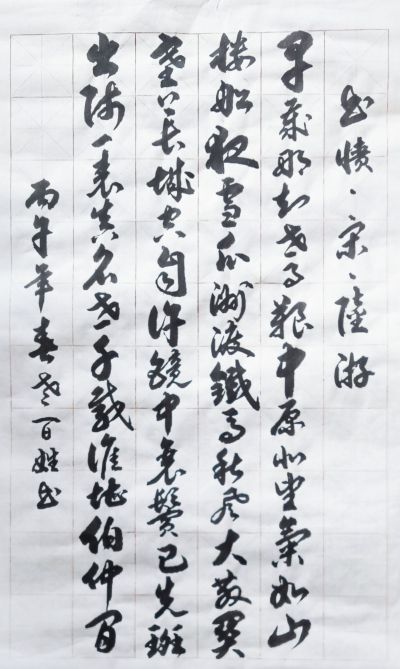 书憤、宋、陸游
早歲那知世事艱中原北望氣如山
樓船夜雪瓜洲渡鐵馬秋風大散關
塞上長城空自許鏡中衰鬢已先斑
出師一表真名世千載誰堪伯仲間
丙午年春老百姓书